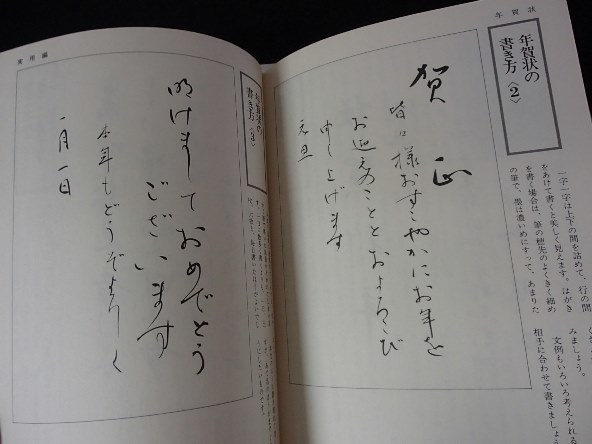 年賀状
年賀状の
書き方〈2〉
一字一字は上下の間を詰めて、行の間
をあけて書くと美しく見えます。はがき
を書く場合は、筆の穂先のよくきく細め
の筆で、墨は濃いめにすって、あまりた
みましょう。
文例もいろいろ考えられる
相手に合わせて書きましょ
賀正
皆々様おすこやかにお年を
お迎えのこととおよろこび
申し上げます
元旦
年賀状の
書き方〈3〉
実用編
明けましておめでとう
ございます
本年もどうぞよろしく
一月一日